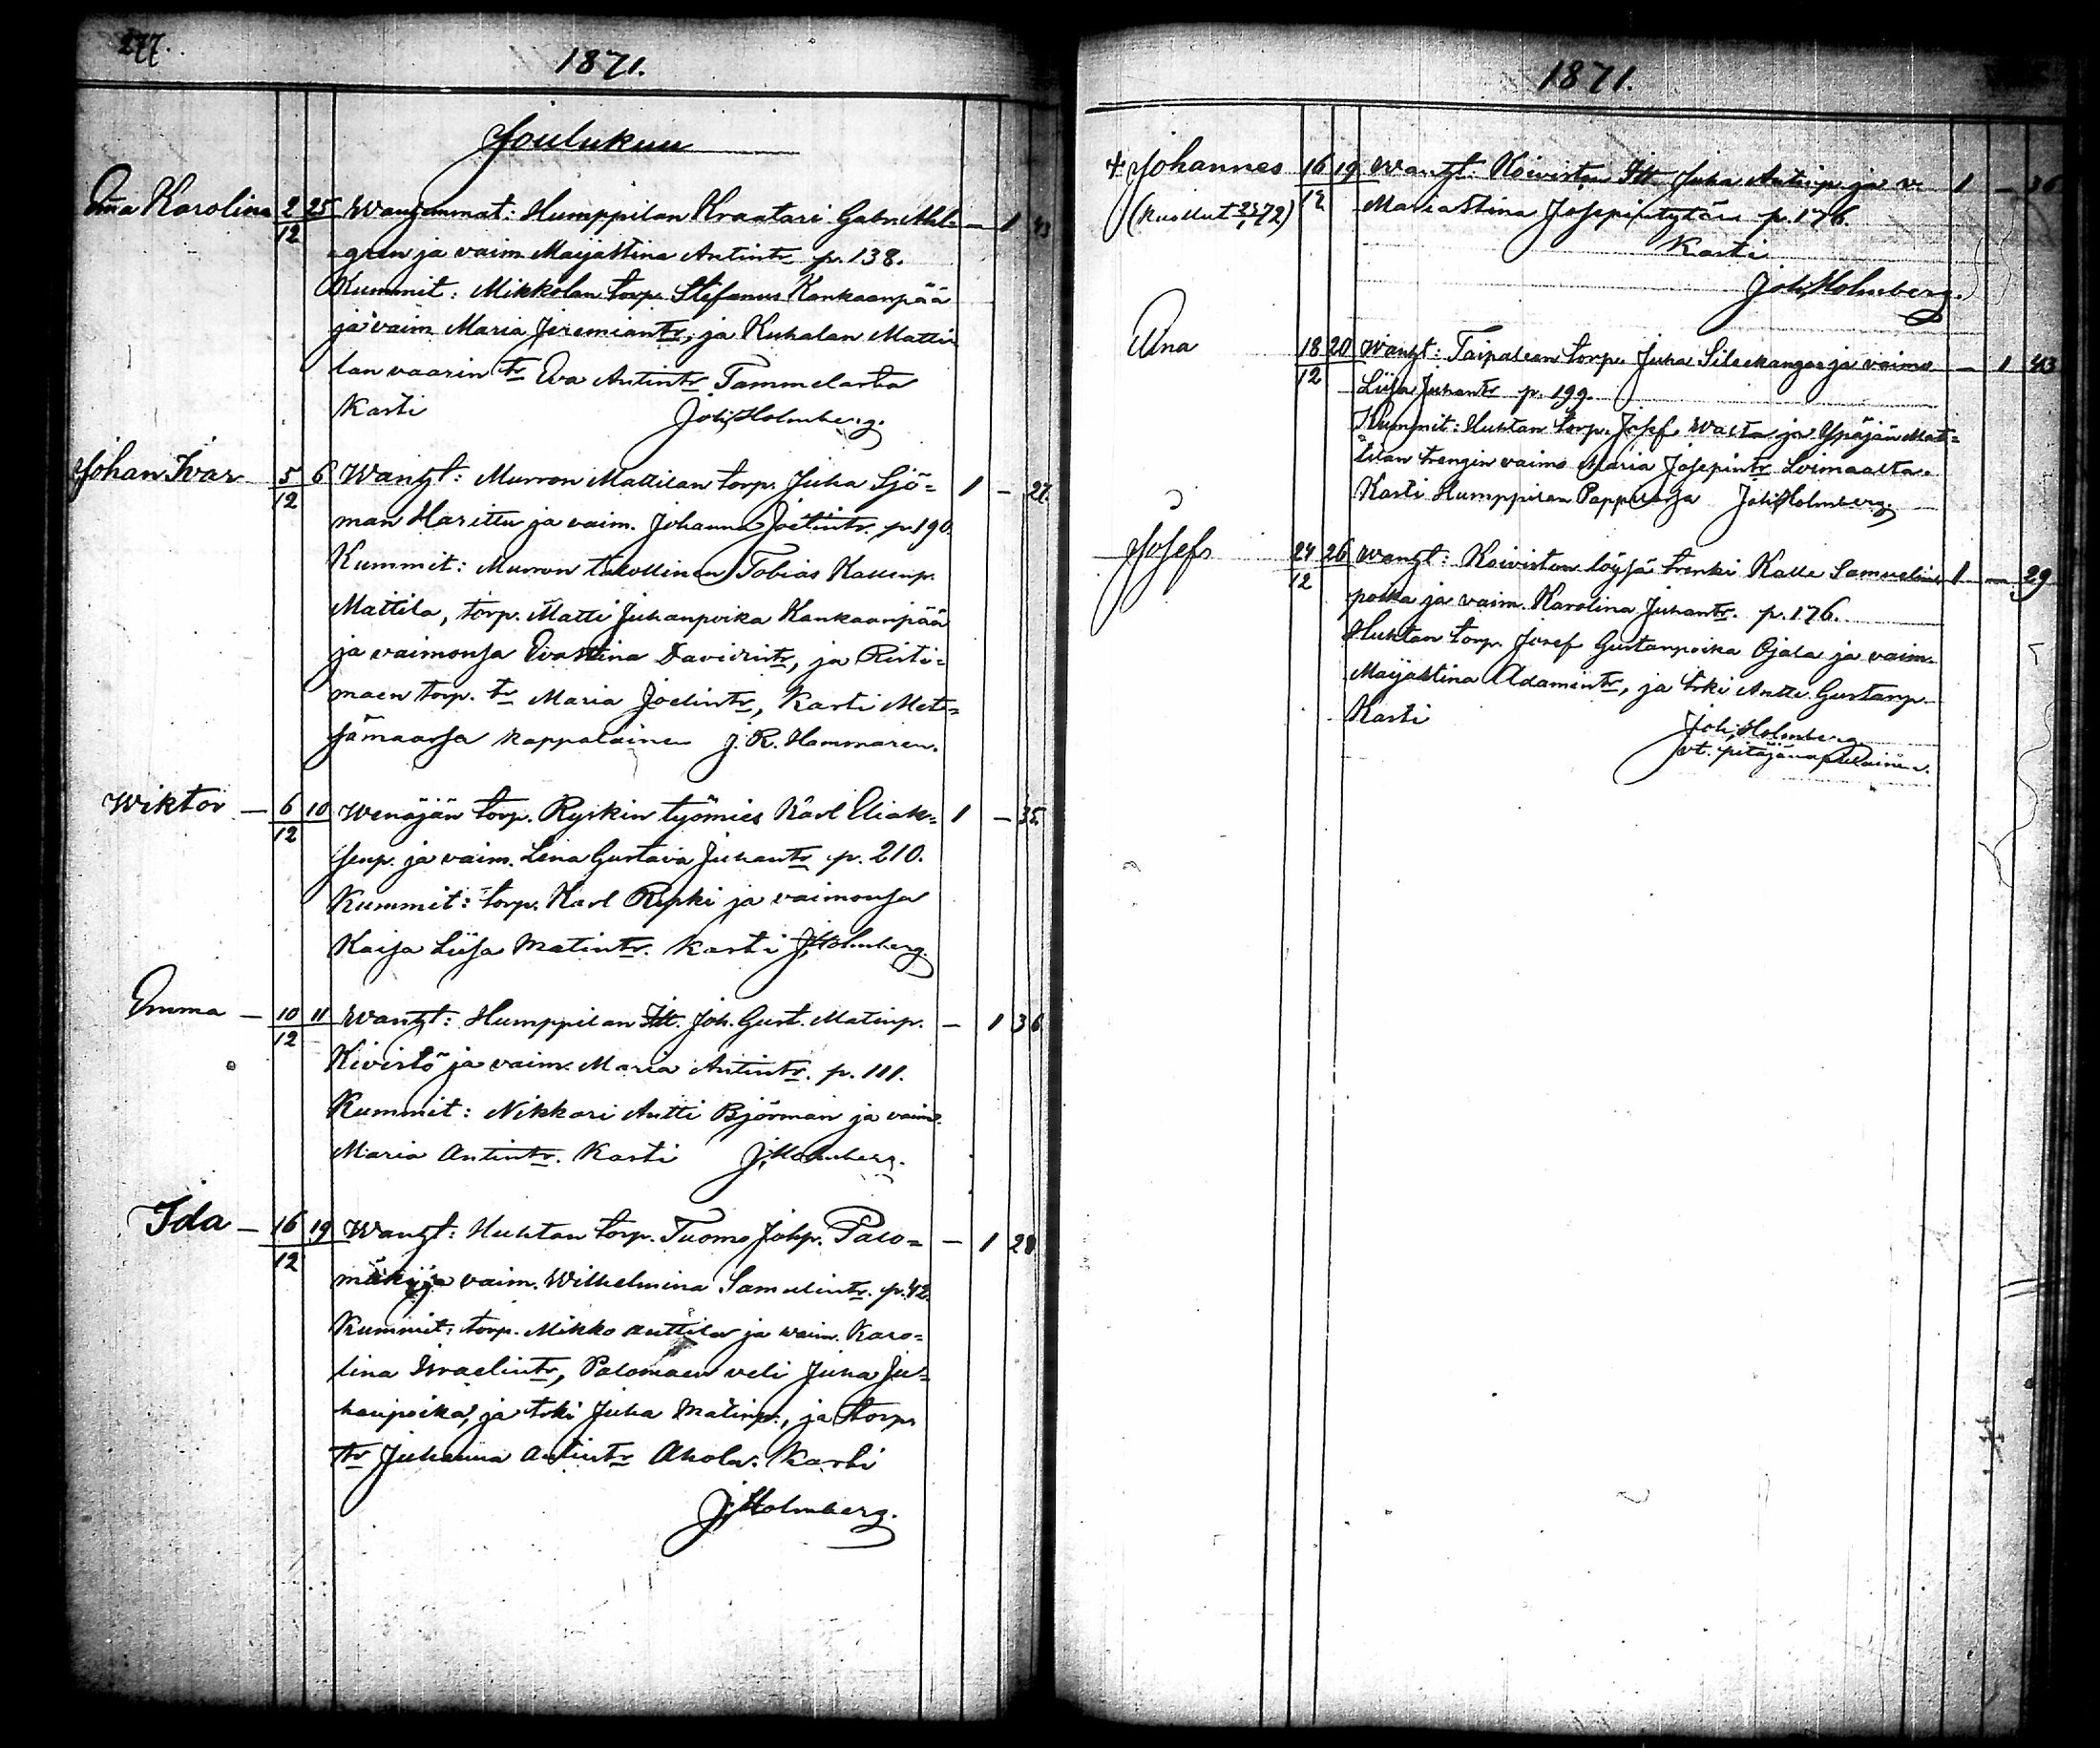 277.
1871.
Joulukuu
Ana Karolina 2/12 25 Wanhemmat: Humppilan Kraatari Gabr. Ahl= — 1 43
gren ja vaim Maijastina Antintr p. 138.
Kummit: Mikkolan torp. Stefanus Kankaanpää
ja vaim Maria Jeremiantr, ja Kuhalan Matti=
lan vaarin tr Eva Antintr Tammelasta
Kasti Joh. Holmberg.
Johan Ivar 5/12 6 Wanht: Murron Mattilan torp. Juha Sjö= 1 — 27.
man Harittu ja vaim. Johanna Joelintr. p. 190.
Kummit: Murron talollinen Tobias Kallenp.
Mattila, torp. Matti Juhanpoika Kankaanpää
ja vaimonsa Evastina Davidintr, ja Risti=
mäen torp. tr Maria Joelintr, Kasti Met=
sämaassa kappalainen J. R. Hammaren.
Wiktor — 6/12 10 Wenäjän torp. Ryskin työmies Karl Eliak= 1 — 35.
senp. ja vaim. Lena Gustava Juhantr p. 210.
Kummit: torp. Karl Ryski ja vaimonsa
Kaisa Liisa Matintr. Kasti J. Holmberg.
Emma — 10/12 11 Wanht: Humppilan Itt. Joh. Gust. Matinp. — 1 36
Kivistö ja vaim. Maria Antintr. p. 111.
Kummit: Nikkari Antti Björman ja vaim.
Maria Antintr. Kasti J. Holmberg.
Ida — 16/12 19 Wanht: Huhtan torp. Tuomo Johp. Palo= — 1 28
mäki ja vaim. Wilhelmina Samulintr. p. 42.
Kummit: torp. Mikko Anttila ja vaim. Karo=
lina Israelintr, Palomäen veli Juha Ju=
hanpoika, ja trki Juha Matinp., ja torp.
tr Juhanna Antintr Ahola. Kasti
J. Holmberg.
1871.
+ Johannes 16/12 19 Wanht: Koiviston Itt Juha Antinp. ja v. 1 — 36
(Kuollut 72) Mariastina Josepintytär p. 176.
Kasti
Joh. Holmberg.
Ana 18/12 20 Wanht: Taipaleen torp. Juha Sileekangas ja vaimo — 1 43
Liisa Juhantr p. 199.
Kummit: Huhtan torp. Josef Wasta ja Ypäjän Mat=
tilan trengin vaimo Maria Josepintr Loimaalta.
Kasti Humppilan Pappilassa Joh. Holmberg.
Josef 24/12 26 Wanht: Koiviston löysä trenki Kalle Samuelin 1 — 29
poika ja vaim. Karolina Juhantr. p. 176.
Huhtan torp. Josef Gustanpoika Ojala ja vaim.
Maijastina Adamintr, ja trki Antti Gustanp.
Kasti Joh. Holmberg
vt. pitäjänapulainen.